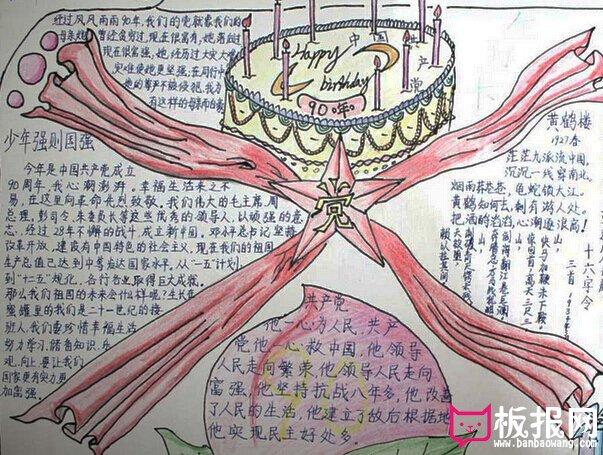 经过风风雨雨90年,我们的党就象我们的
现在很富强,她经历过大灾大难
少年强则国强
今年是中国共产党成立
90周年,我心潮澎湃。幸福生活来之不
易,在这里向革命先烈致敬。我们伟大的毛主席,周
总理,彭司令,朱委员长等这些优秀的领导人,以顽强的意
志,经过28年不懈的战斗,成立新中国。邓小平总书记坚持
改革开放,建设有中国特色的社会主义,现在我们的祖国
生产总值已达到中等发达国家水平。从“一五”计划
到“十二五”规化,各行各业取得巨大成就。
那么我们祖国的未来会什么样呢?生长在
蜜罐里的我们是二十一世纪的接
班人,我们要珍惜幸福生活
努力学习,储备知识,乐
观,向上,要让我们
国家更有实力更
加富强。
Happy
birthday
中国共产党
90年
党
共产党
他一心为人民,共产
党他一心救中国,他领导
人民走向繁荣,他领导人民走向
富强,他坚持抗战八年多,他改善
了人民的生活,他建立了敌后根据地
他实现民主好处多。
黄鹤楼
1927春
茫茫九派流中国,
沉沉一线穿南北。
烟雨莽苍苍,龟蛇锁大江。
黄鹤知何去,剩有游人处。
把酒酹滔滔,心潮逐浪高!
十六字令
三首
山,
快马加鞭未下鞍,
惊回首,
离天三尺三
板报网
www.banbaowang.com